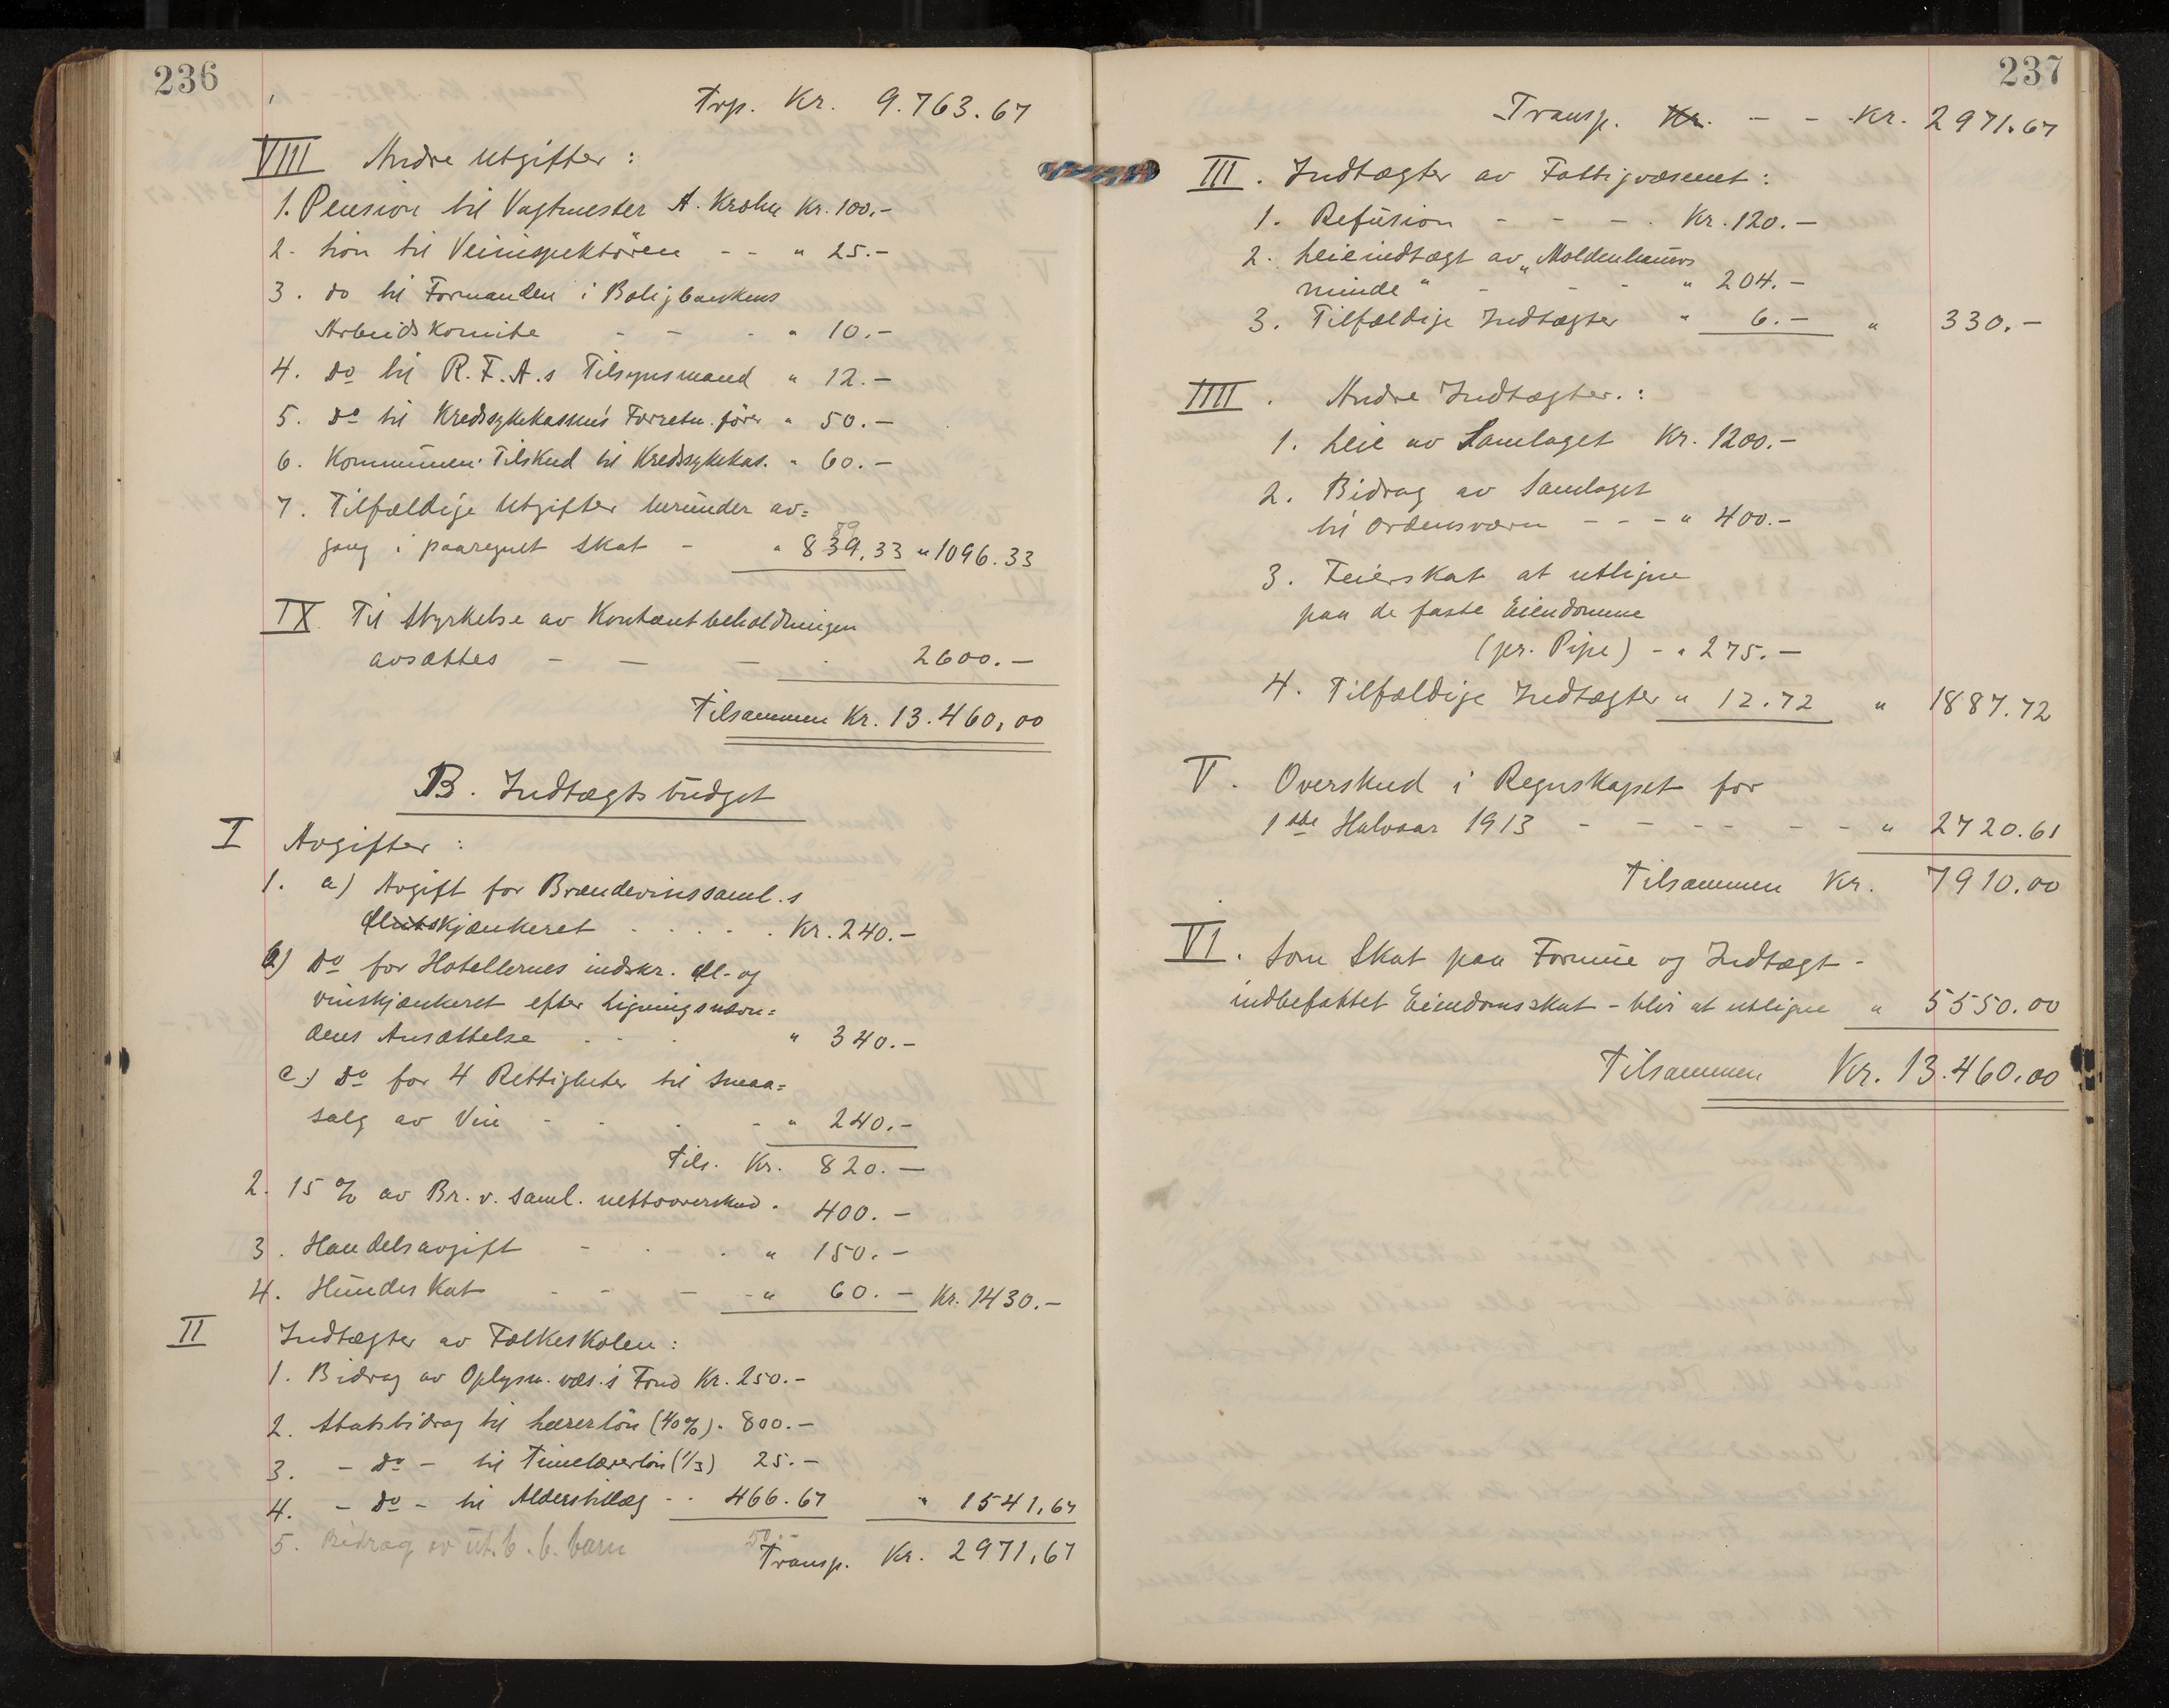 236
Trp. Kr. 9.763.67
VIII Andre Utgifter :
1. Pension til Vagtmester A. Krohn Kr. 100.-
2. Lön til Veiinspektören - - " 25.-
3. do til Formanden i Boligbankens
Arbeidskomite - - - " 10.-
4. do til R.F.A.s Tilsynsmand " 12.-
5. do til Kredssykekassens Forretn.förer " 50.-
6. Kommunen. Tilskud til Kredssykekas. " 60.-
7. Tilfældige Utgifter herunder av=
79
gang i paaregnet Skat - " 839,33 " 1096.33
IX Til Styrkelse av Kontantbeholdningen
avsættes - - - . 2600.-
Tilsammen Kr. 13.460,00
B. Indtægtsbudget
I Avgifter :
1. a) Avgift for Brændevinssaml.s
Ølutskjænkeret . . . . . Kr. 240.-
b) Do for Hotellernes indskr. Øl- og
vinskjænkeret efter Ligningsnævn=
dens Ansættelse . . . " 340.-
c) Do for 4 Rettigheter til Smaa=
salg av Vin - - . - " 240.-
Tils. Kr. 820.-
2. 15 % av Br.v.saml. nettooverskud . 400.-
3. Handelsavgift - . . " 150.-
4. Hundeskat - - - - " 60.- Kr. 1430.-
II Indtægter av Folkeskolen :
1. Bidrag av Oplysn.væs.s Fond Kr. 250.-
2. Statsbidrag til Lærerlön (40%) . 800.-
3. - Do - til Timelærerlön (1/3) 25.-
4. - Do - til Alderstillæg - . 466.67 " 1541,67
5. Bidrag av ut.b.b. barn 50.-
Transp. Kr. 2971,67
237
Transp. Kr. - - Kr. 2971.67
III. Indtægter av Fattigvæsenet :
1. Refusion - - - . Kr. 120.-
2. Leieindtægt av „Moldenhauers
minde" - - - " 204.-
3. Tilfældige Indtægter " 6.- " 330.-
IIII. Andre Indtægter. :
1. Leie av Samlaget Kr. 1200.-
2. Bidrag av Samlaget
til Ordensværn - - - " 400.-
3. Feierskat at utligne
paa de faste Eiendomme
(pr. Pipe) - " 275.-
4. Tilfældige Indtægter " 12.72 " 1887.72
V. Overskud i Regnskapet for
1ste Halvaar 1913 - - - - - - " 2720.61
Tilsammen Kr. 7910.00
VI. Som Skat paa Formue og Indtægt -
indbefattet Eiendomsskat - blir at utligne " 5550.00
Tilsammen Kr. 13.460.00